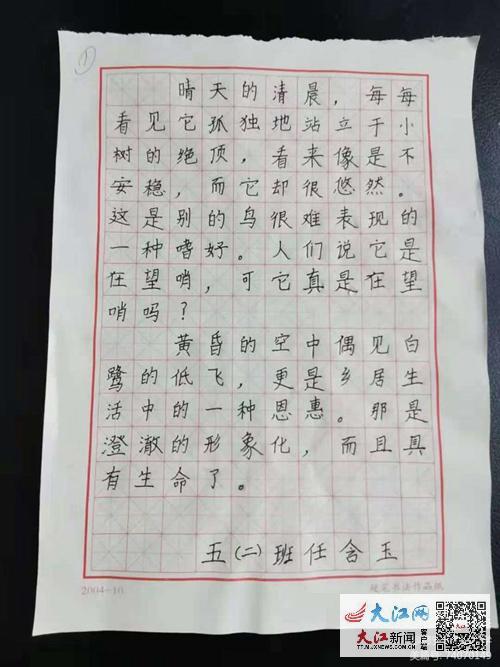 ①
晴天的清晨，每每
看见它孤独地站立于小
树的绝顶，看来像是不
安稳，而它却很悠然。
这是别的鸟很难表现的
一种嗜好。人们说它是
在望哨，可它真是在望
哨吗？
黄昏的空中偶见白
鹭的低飞，更是乡居生
活中的一种恩惠。那是
澄澈的形象化，而且具
有生命了。
五(二)班任含玉
2004-10
硬笔书法作品纸
大江网
TT.MJXNEWS.COM
大江新闻 客户端